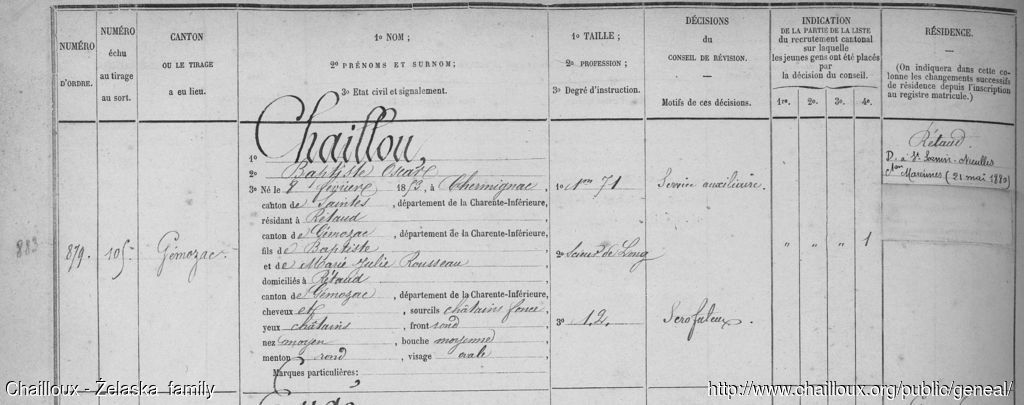 NUMÉRO
D'ORDRE.
NUMÉRO
échu
au tirage
au sort.
CANTON
OU LE TIRAGE
a eu lieu.
1o NOM ;
2o PRÉNOMS ET SURNOM;
3o Etat civil et signalement.
1o TAILLE ;
2o PROFESSION ;
3o Degré d'instruction.
DÉCISIONS
du
CONSEIL DE RÉVISION.
Motifs de ces décisions.
INDICATION
DE LA PARTIE DE LA LISTE
du recrutement cantonal
sur laquelle
les jeunes gens ont été placés
par
la décision du conseil.
1re. 2e. 3e. 4e.
RÉSIDENCE.
(On indiquera dans cette co-
lonne les changements successifs
de résidence depuis l'inscription
au registre matricule.)
883
879.
105
Gémozac.
1o Chaillou,
2o Baptiste Oscar
3o Né le 2 février 1853, à Chermignac,
canton de Saintes, département de la Charente-Inférieure,
résidant à Rétaud
canton de Gémozac, département de la Charente-Inférieure,
fils de Baptiste
et de Marie Julie Rousseau
domiciliés à Rétaud
canton de Gémozac, département de la Charente-Inférieure,
cheveux et, sourcils châtains foncé
yeux châtains, front rond
nez moyen, bouche moyenne
menton rond, visage ovale
Marques particulières:
1o 1m 71
2o Scieur de Long
3o 1.2.
Service auxiliaire.
Scrofaleux.
" " " 1
Rétaud.
D. à St Sornin-Nieulles
Con Marennes (21 mai 1880)
Chailloux - Želaska family
http://www.chailloux.org/public/geneal/